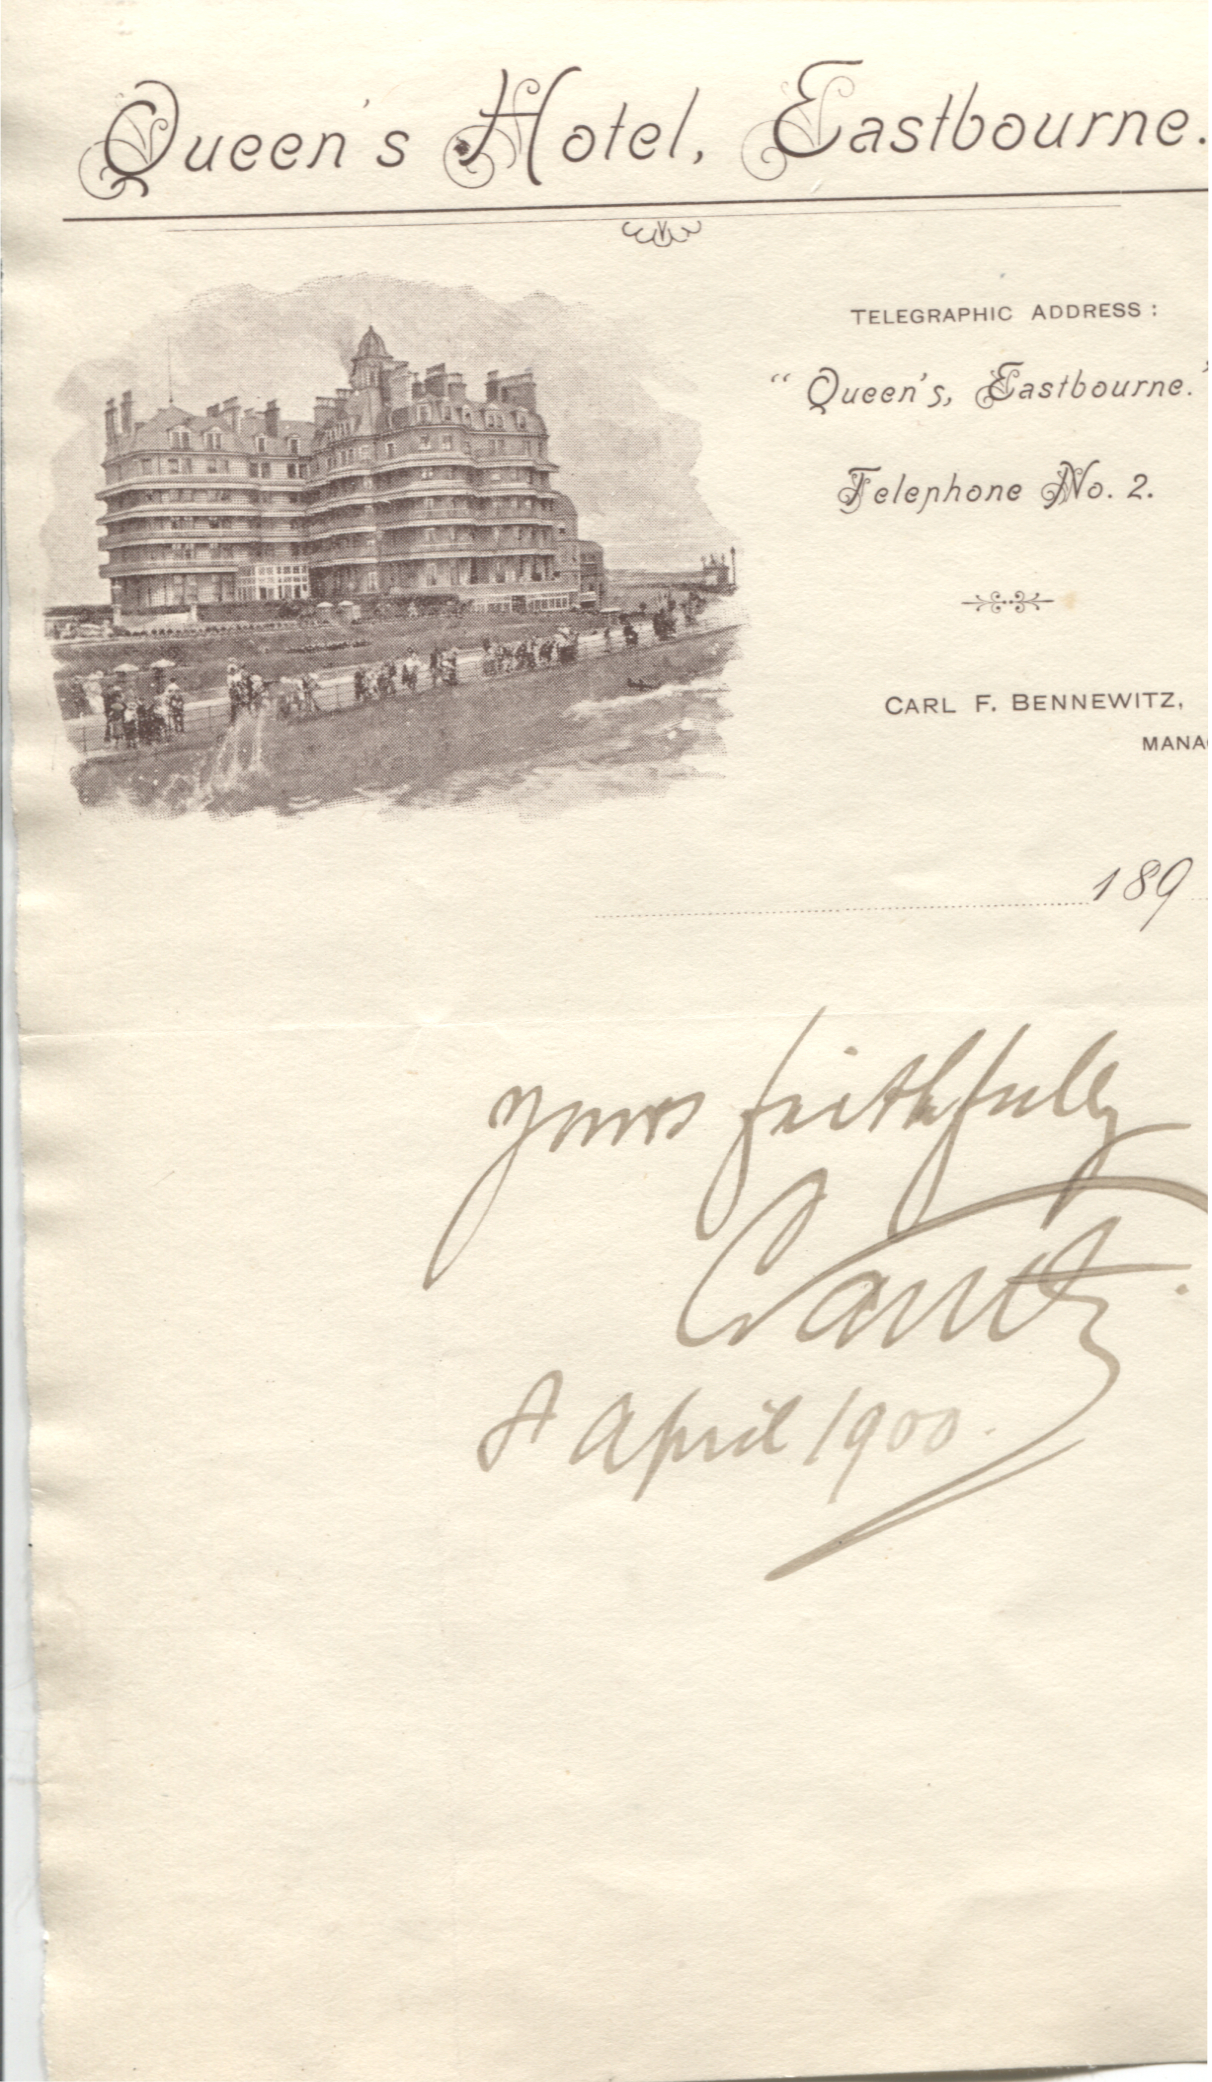 Queen's Hotel, Eastbourne.
TELEGRAPHIC ADDRESS:
"Queen's, Eastbourne."
Telephone No. 2.
CARL F. BENNEWITZ,
MANA
189
Yours faithfully
April 1900.